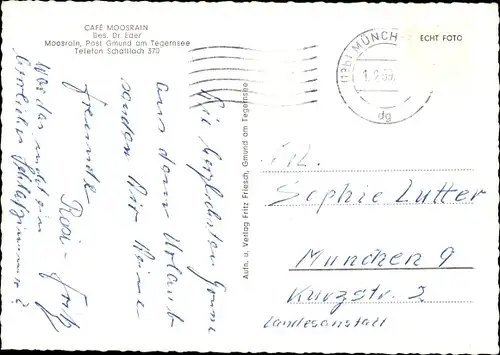 CAFÉ MOOSRAIN
Bes. Dr. Eder
Moosrain, Post Gmund am Tegernsee
Telefon Schaftlach 370
(13b) MÜNCH
dg
ECHT FOTO
Aufn. u. Verlag Fritz Friesch, Gmund am Tegernsee
Die herzlichsten Grüsse
aus dem Urlaub
senden Dir Deine
Freunde
Rosi - Fritz
War das nicht ein
herrliches Schlafzimmer?
Frl.
Sophie Lutter
München 9
Kurzstr. 2
Landesanstalt